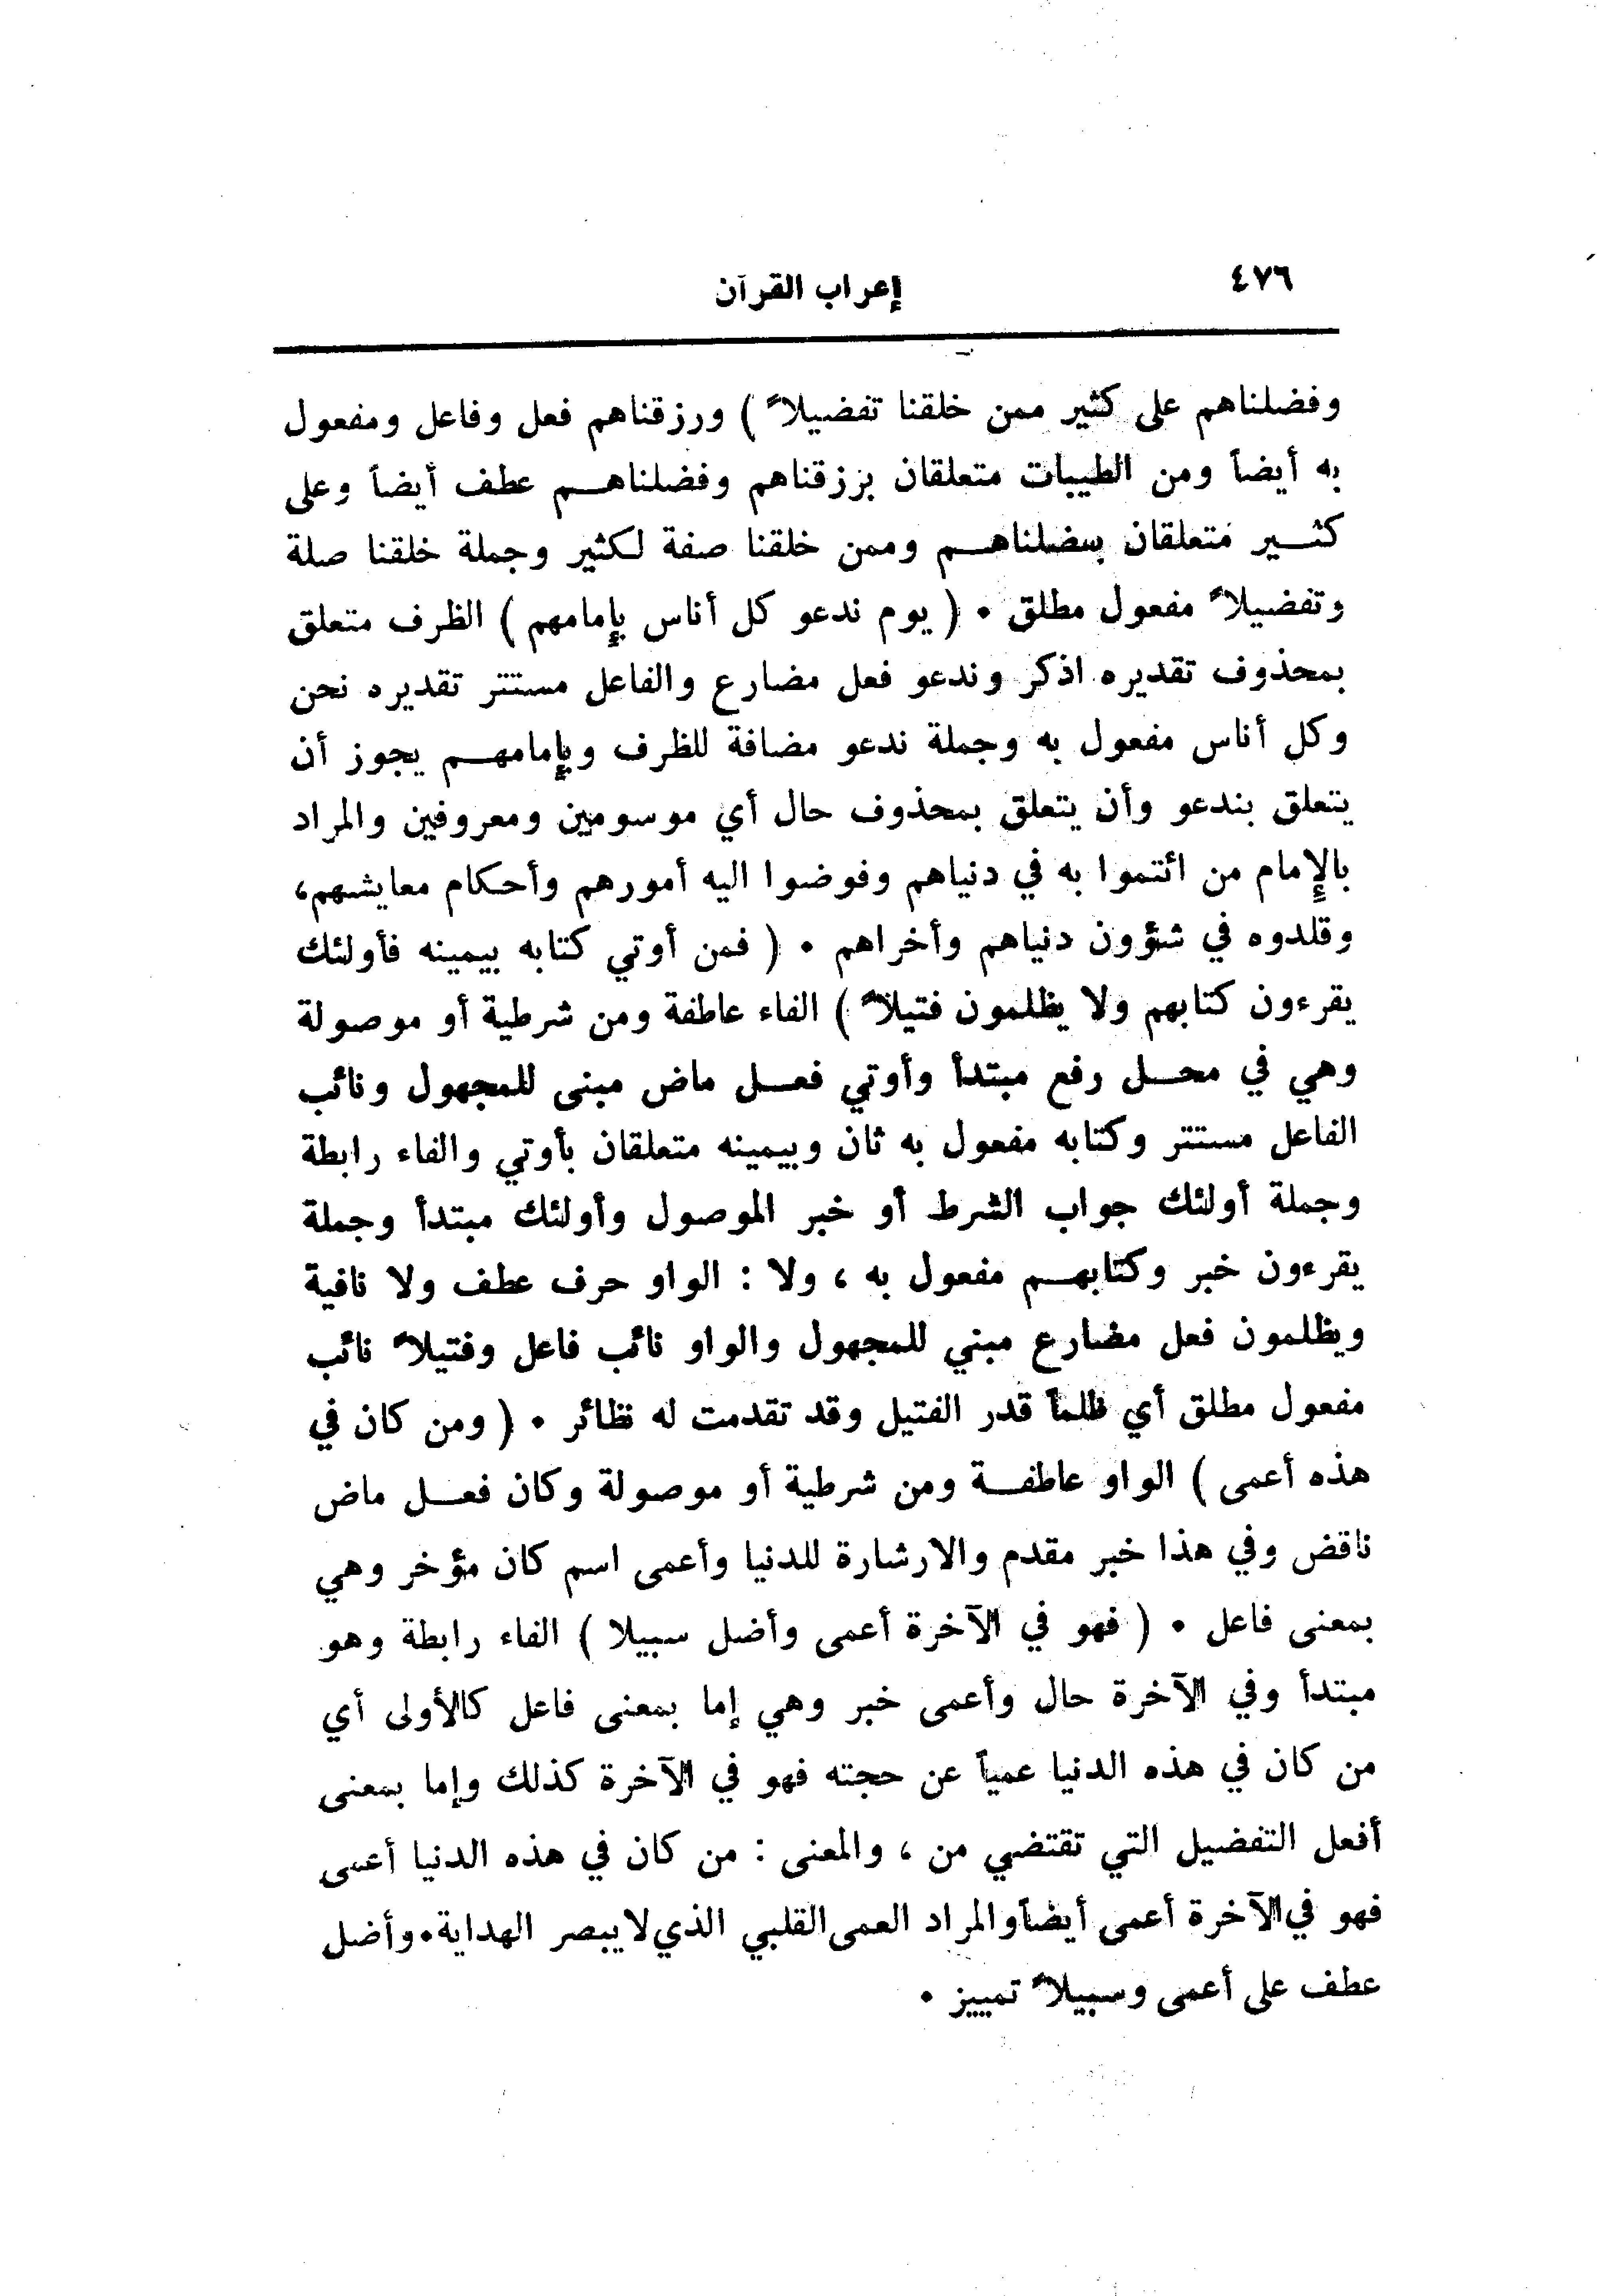 ٤٧٦
إعراب القرآن
وفضلناهم على كثير ممن خلقنا تفضيلاً ) ورزقناهم فعل وفاعل ومفعول
به أيضاً ومن الطيبات متعلقان برزقناهم وفضلناهــم عطف أيضاً وعلى
كثــير متعلقان بفضلناهــم وممن خلقنا صفة لكثير وجملة خلقنا صلة
وتفضيلاً مفعول مطلق ٠ ( يوم ندعو كل أناس بإمامهم ) الظرف متعلق
بمحذوف تقديره اذكر وندعو فعل مضارع والفاعل مستتر تقديره نحن
وكل أناس مفعول به وجملة ندعو مضافة للظرف وبإمامهــم يجوز أن
يتعلق بندعو وأن يتعلق بمحذوف حال أي موسومين ومعروفين والمراد
بالإمام من ائتموا به في دنياهم وفوضوا اليه أمورهم وأحكام معايشهم،
وقلدوه في شئؤون دنياهم وأخراهم ٠ ( فمن أوتي كتابه بيمينه فأولئك
يقرءون كتابهم ولا يظلمون فتيلاً ) الفاء عاطفة ومن شرطية أو موصولة
وهي في محــل رفع مبتدأ وأوتي فعــل ماض مبنى للمجهول ونائب
الفاعل مستتر وكتابه مفعول به ثان وبيمينه متعلقان بأوتي والفاء رابطة
وجملة أولئك جواب الشرط أو خبر الموصول وأولئك مبتدأ وجملة
يقرءون خبر وكتابهــم مفعول به ، ولا : الواو حرف عطف ولا نافية
ويظلمون فعل مضارع مبني للمجهول والواو نائب فاعل وفتيلاً نائب
مفعول مطلق أي ظلماً قدر الفتيل وقد تقدمت له نظائر ٠ ( ومن كان في
هذه أعمى ) الواو عاطفــة ومن شرطية أو موصولة وكان فعــل ماض
ناقض وفي هذا خبر مقدم والارشارة للدنيا وأعمى اسم كان مؤخر وهي
بمعنى فاعل ٠ ( فهو في الآخرة أعمى وأضل سبيلا ) الفاء رابطة وهو
مبتدأ وفي الآخرة حال وأعمى خبر وهي إما بمعنى فاعل كالأولى أي
من كان في هذه الدنيا عمياً عن حجته فهو في الآخرة كذلك وإما بمعنى
أفعل التفضيل التي تقتضي من ، والمعنى : من كان في هذه الدنيا أعمى
فهو في الآخرة أعمى أيضاً والمراد العمى القلبي الذي لا يبصر الهداية٠ وأضل
عطف على أعمى وسبيلاً تمييز ٠